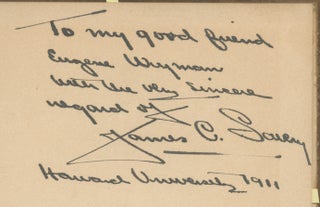 To my good friend
Eugene Wyman
With the very Sincere
regard of
James C.
Howard University 1911